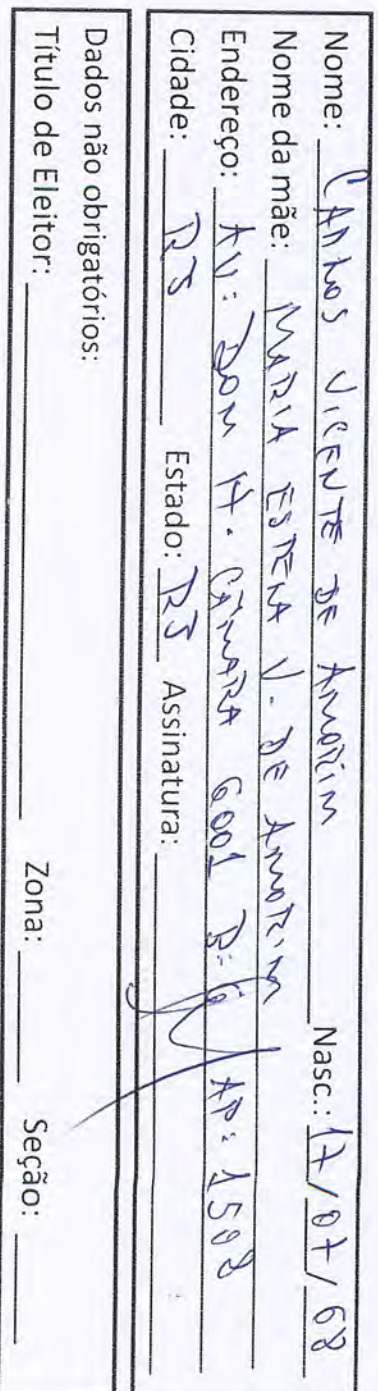 Nome: CARLOS VICENTE DE AMORIM Nasc.: 17/07/68
Nome da mãe: MARIA ESTELA V. DE AMORIM
Endereço: AV: DOM H. CÂMARA 6001 B: 6 AP: 1508
Cidade: RJ Estado: RJ Assinatura:
Dados não obrigatórios:
Título de Eleitor: Zona: Seção: